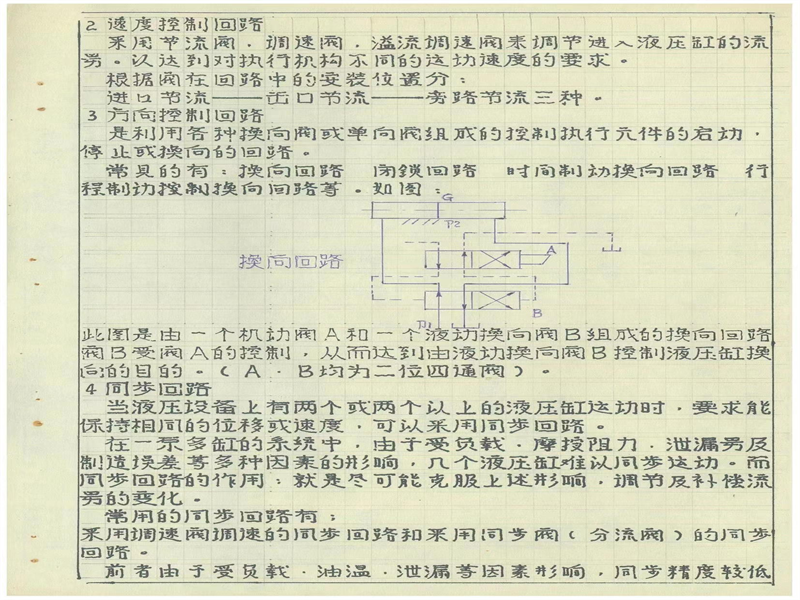 2 速度控制回路
采用节流阀．调速阀．溢流调速阀来调节进入液压缸的流
量。以达到对执行机构不同的运动速度的要求。
根据阀在回路中的安装位置分：
进口节流——出口节流——旁路节流三种。
3 方向控制回路
是利用各种换向阀或单向阀组成的控制执行元件的启动，
停止或换向的回路。
常见的有：换向回路 闭锁回路 时间制动换向回路 行
程制动控制换向回路等。如图：
G
P2
A
换向回路
B
P1
此图是由一个机动阀A和一个液动换向阀B组成的换向回路
阀B受阀A的控制，从而达到由液动换向阀B控制液压缸换
向的目的。（A．B均为二位四通阀）。
4 同步回路
当液压设备上有两个或两个以上的液压缸运动时，要求能
保持相同的位移或速度，可以采用同步回路。
在一泵多缸的系统中，由于受负载．摩擦阻力．泄漏量及
制造误差等多种因素的影响，几个液压缸难以同步运动。而
同步回路的作用：就是尽可能克服上述影响，调节及补偿流
量的变化。
常用的同步回路有：
采用调速阀调速的同步回路和采用同步阀（分流阀）的同步
回路。
前者由于受负载．油温．泄漏等因素影响，同步精度较低